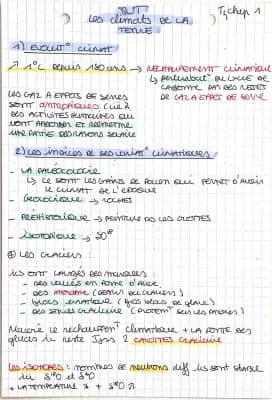 Les climats de la
Terre
1) Evolut° climat
↗ 1°C depuis 150 ans → réchauffement climatique
↳ perturbat° du cycle de
carbone par des rejet
de gaz à effet de serre
Les gaz à effets de serres
sont anthropiques (lié à
des activités humaines) qui
vont absorber et réémettre
une partie des rayons solaire
2) Les indices de ses variat° climatiques
- la paléoécologie
↳ ce sont les grains de pollen qui permet d'avoir
le climat de l'époque
- géologique → roches
- préhistorique → peinture ds les grottes
- isotopique → δ18O
⊕ les glaciers :
ils ont laissés des marques :
- des vallées en forme d'auge
- des moraine
- blocs erratique (gros blocs de glace)
- des stries glaciaire
Malgré le réchauffem^t climatique + la fonte des
glaces il reste 2 calottes glaciaire
Les isotopes : nombres de neutrons diff ils sont stable
ici δ16O et δ18O
+ la température ↗ + δ18O ↗